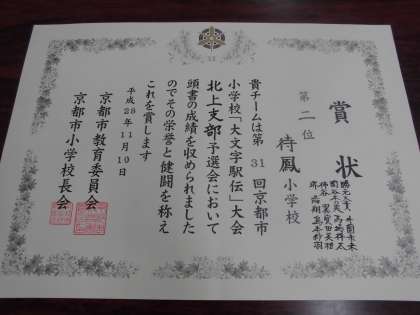 賞状
第二位
待鳳小学校
貴チームは第31回京都市
小学校「大文字駅伝」大会
北上支部予選会において
頭書の成績を収められました
のでその栄誉と健闘を称え
これを賞します
平成28年11月10日
京都市教育委員会
京都市小学校長会